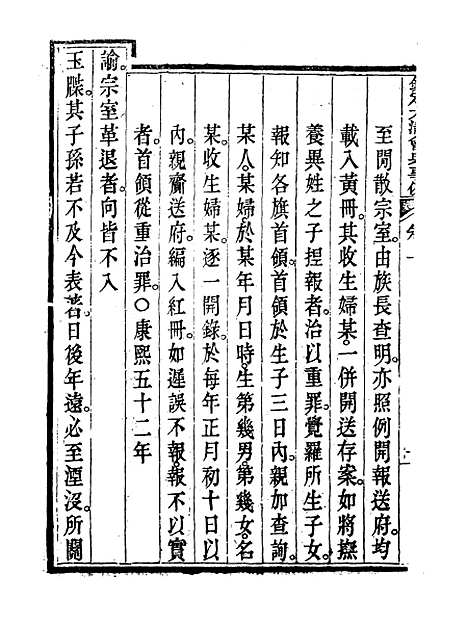 欽定大清會典事例 卷一
至閒散宗室。由族長查明。亦照例開報送府。均
載入黃冊。其收生婦某。一併開送存案。如將撫
養異姓之子捏報者。治以重罪。覺羅所生子女。
報知各旗首領。首領於生子三日內。親加查詢。
某人某婦。於某年月日時。生第幾男。第幾女。名
某。收生婦某。逐一開錄。於每年正月初十日以
內。親齎送府。編入紅冊。如遲誤不報。報不以實
者。首領從重治罪。○康熙五十二年
諭。宗室革退者。向皆不入
玉牒。其子孫若不及今表著。日後年遠。必至湮沒。所關